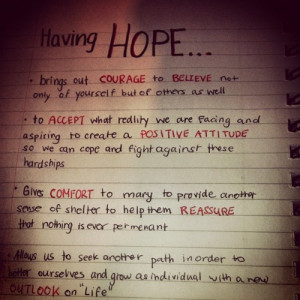 Having HOPE...
• brings out COURAGE to BELIEVE not
only of yourself but of others as well
• to ACCEPT what reality we are facing and
aspiring to create a POSITIVE ATTITUDE
so we can cope and fight against these
hardships
• Gives COMFORT to many to provide another
sense of shelter to help them REASSURE
that nothing is ever permenant
Allows us to seek another path in order to
better ourselves and grow as individual with a new
OUTLOOK on "Life"